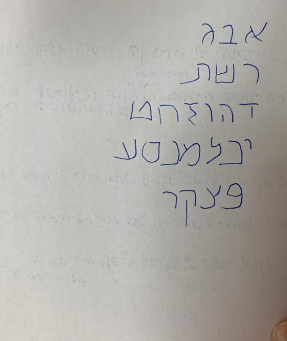 אבג
רשת
דהוזחט
יכלמנסע
פצקר